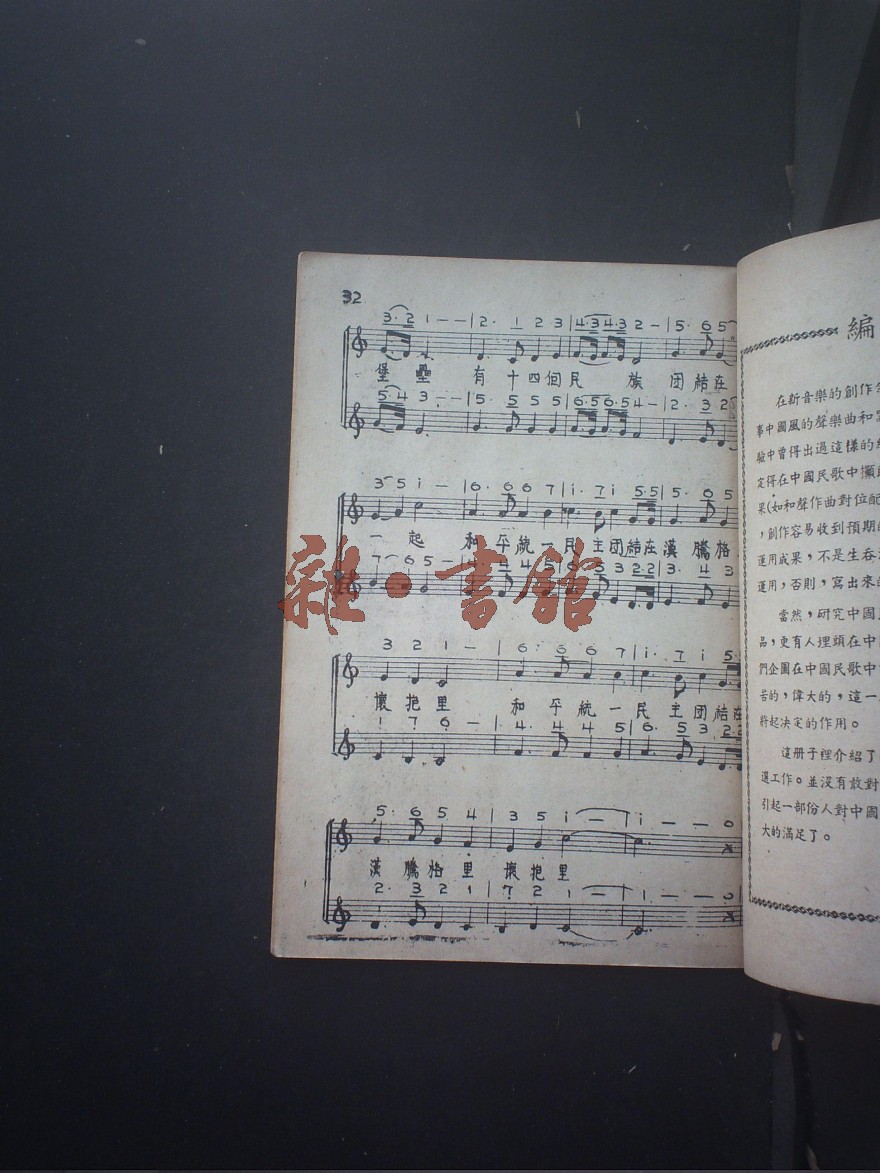 32
3·2 1 - - | 2· 1 2 3 | 4·3 4·3 2 - | 5· 6 5
堡壘 有十四個民 族 团結在
5·4 3 - - | 5· 5 5 5 | 6·5 6·5 4 - | 2· 3 2
3 5 i - | 6· 6 6 7 | i· 7 i 5·5 | 5· 6 5
一起 和平統一民主团結在漢騰格
3 2 1 -
懷抱里 和平統一民主团結在
1 7 6 - 4· 4 4 5 | 6· 5 3 2·2
5· 6 5 4 | 3 5 i - | i - - 0
漢騰格里懷抱里
2· 3 2 1 | 7 2 1 - | 1 - - 0
雜·書館
編
在新音樂的創作
事中國風的聲樂曲和
驗中曾得出過這樣的
定得在中國民歌中擷
果(如和聲作曲對位配
,創作容易收到預期的
運用成果,不是生吞
運用,否則,寫出來
當然,研究中國
品,更有人埋頭在中
們企圖在中國民歌中
苦的,偉大的,這一
將起決定的作用。
這册子裡介紹了
選工作。並沒有敢對
引起一部份人對中國
大的滿足了。